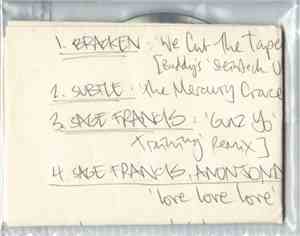 1. BRACKEN : 'We Cut The Tape
[Buddy's
2. SUBTLE : 'The Mercury Craze
3. SAGE FRANCIS : 'Gunz Yo'
Training Remix]
4 SAGE FRANCIS,
'love love love'